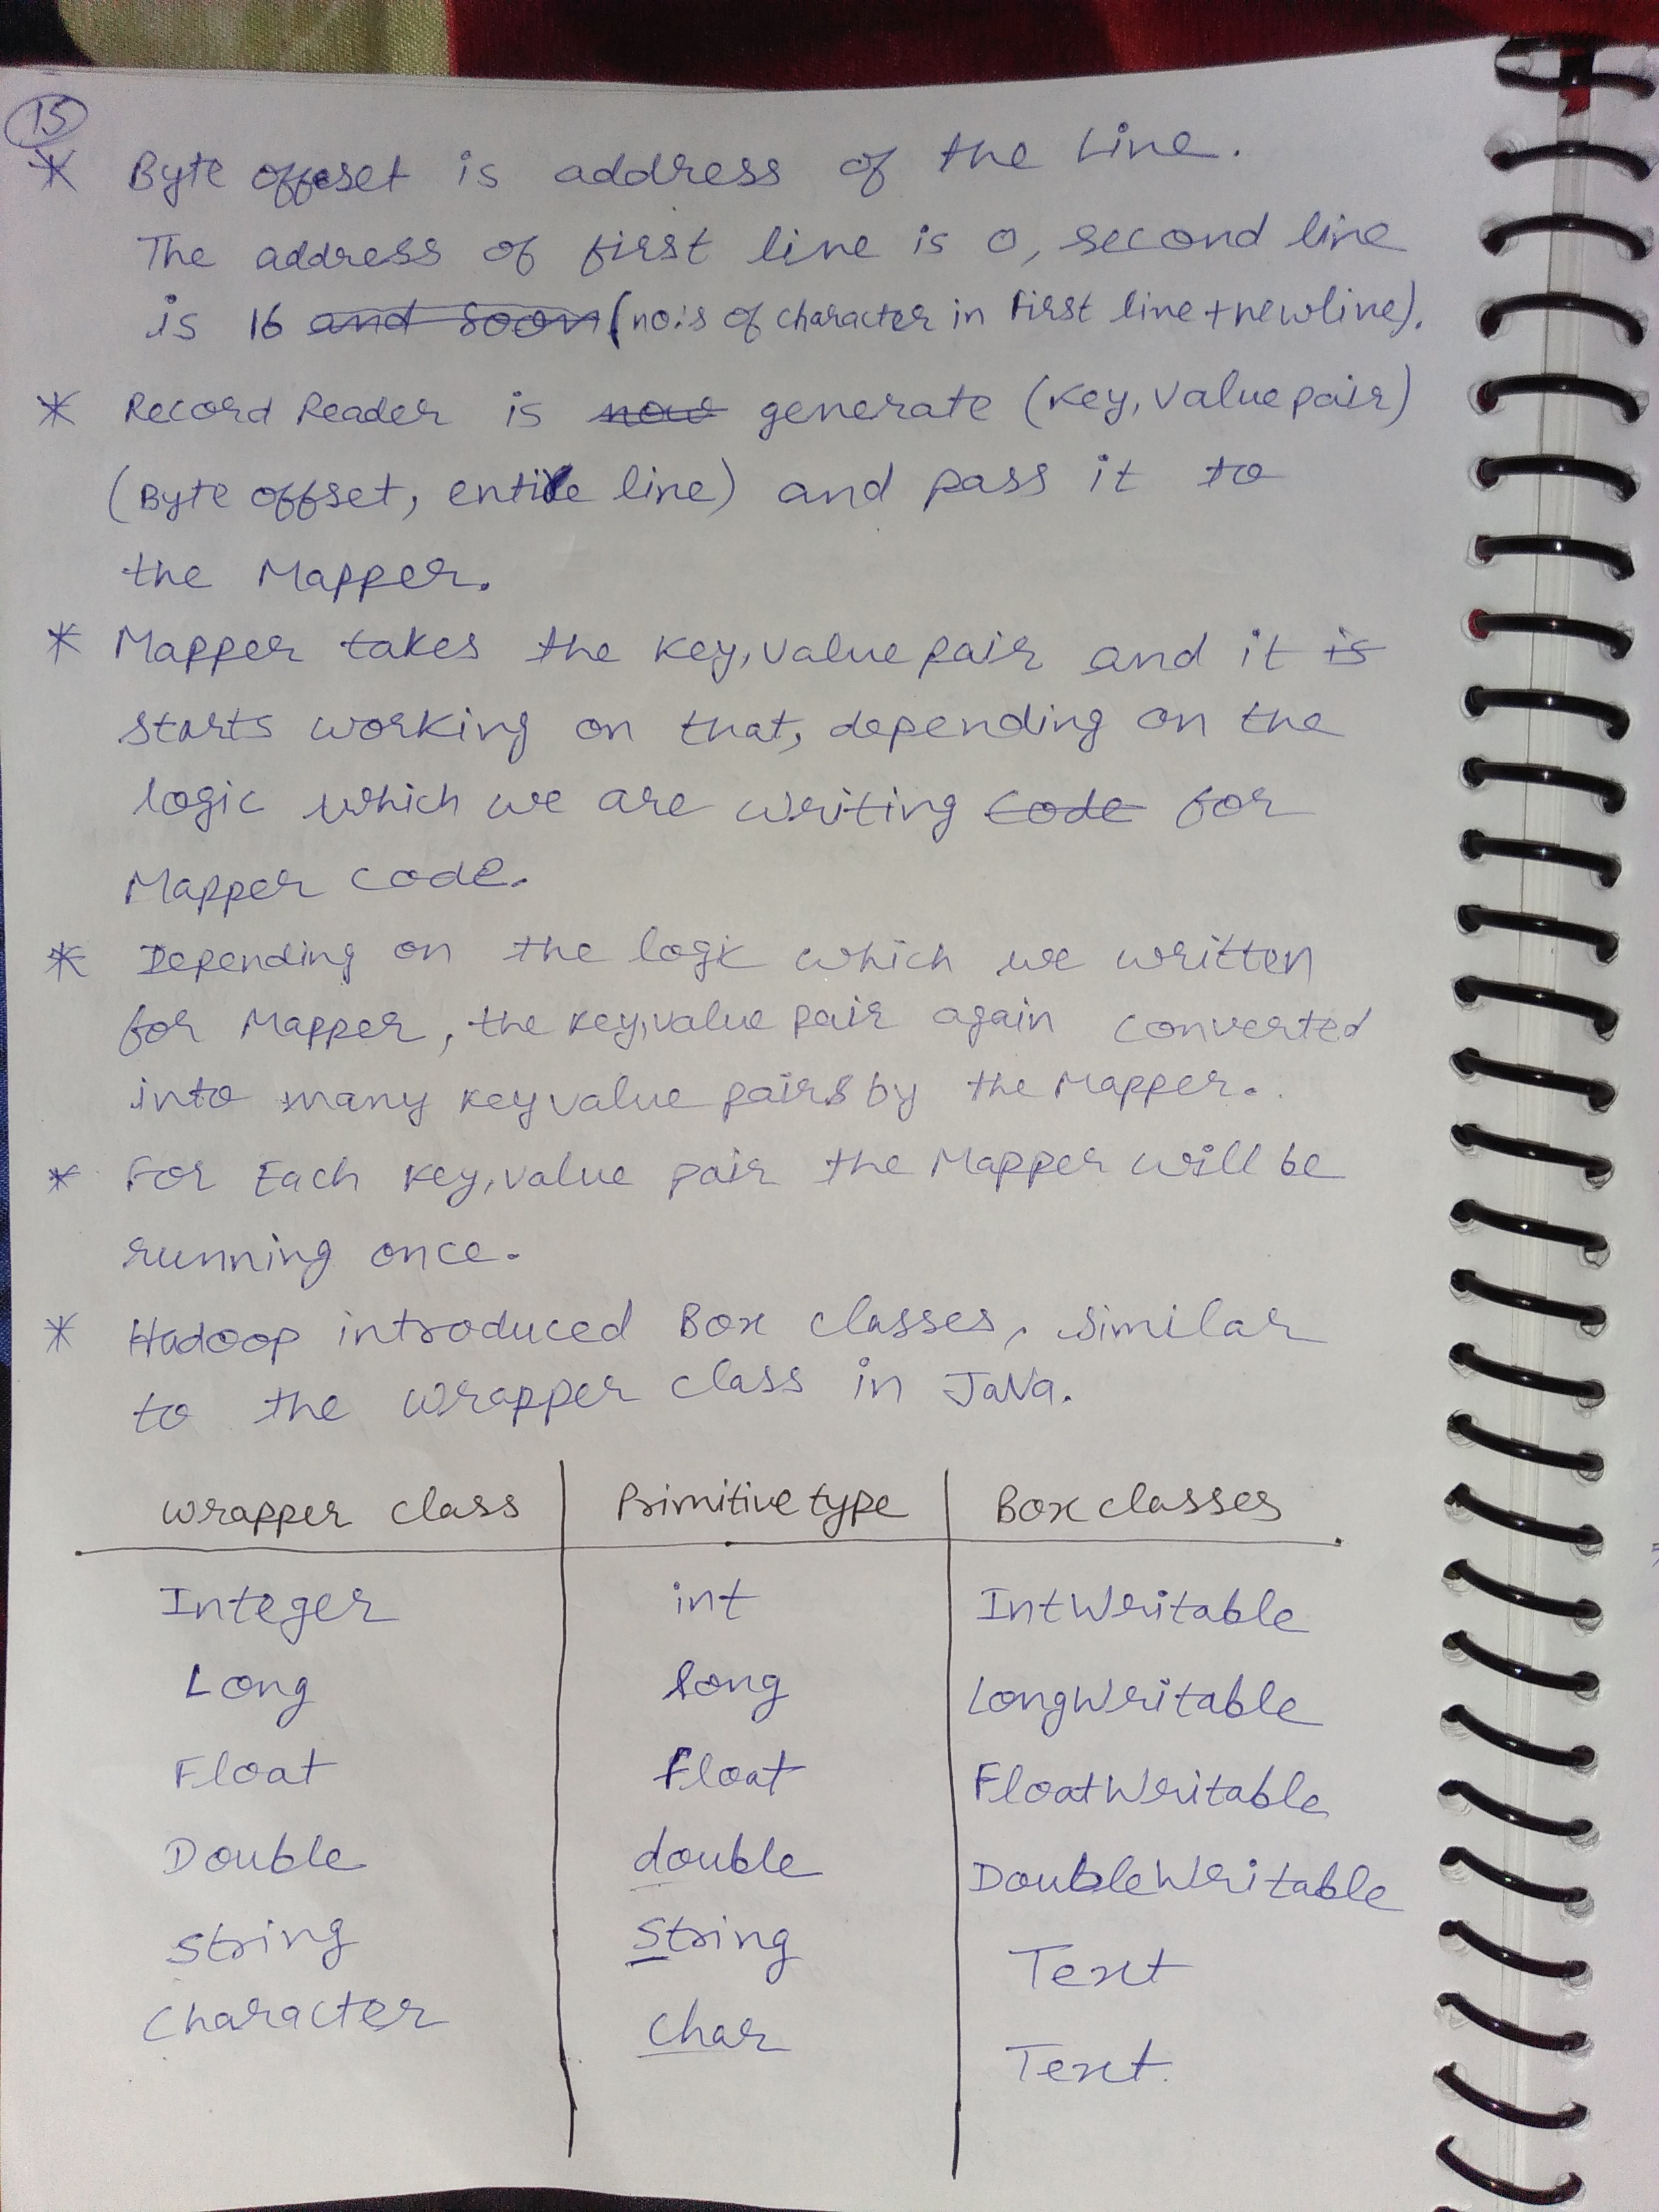 15
* Byte offset is address of the Line.
The address of first line is 0, second line
is 16 and soon (no:s of character in first line + newline).
* Record Reader is now generate (Key, Value pair)
(Byte offset, entire line) and pass it to
the Mapper.
* Mapper takes the key, value pair and it is
starts working on that, depending on the
logic which we are writing code for
Mapper code.
* Depending on the logic which we written
for Mapper, the key, value pair again converted
into many key value pairs by the Mapper.
* For Each key, value pair the Mapper will be
running once.
* Hadoop introduced Box classes, similar
to the wrapper class in Java.
wrapper class | Primitive type | Box classes
Integer | int | IntWritable
Long | long | LongWritable
Float | Float | FloatWritable
Double | double | DoubleWritable
String | String | Text
Character | Char | Text.